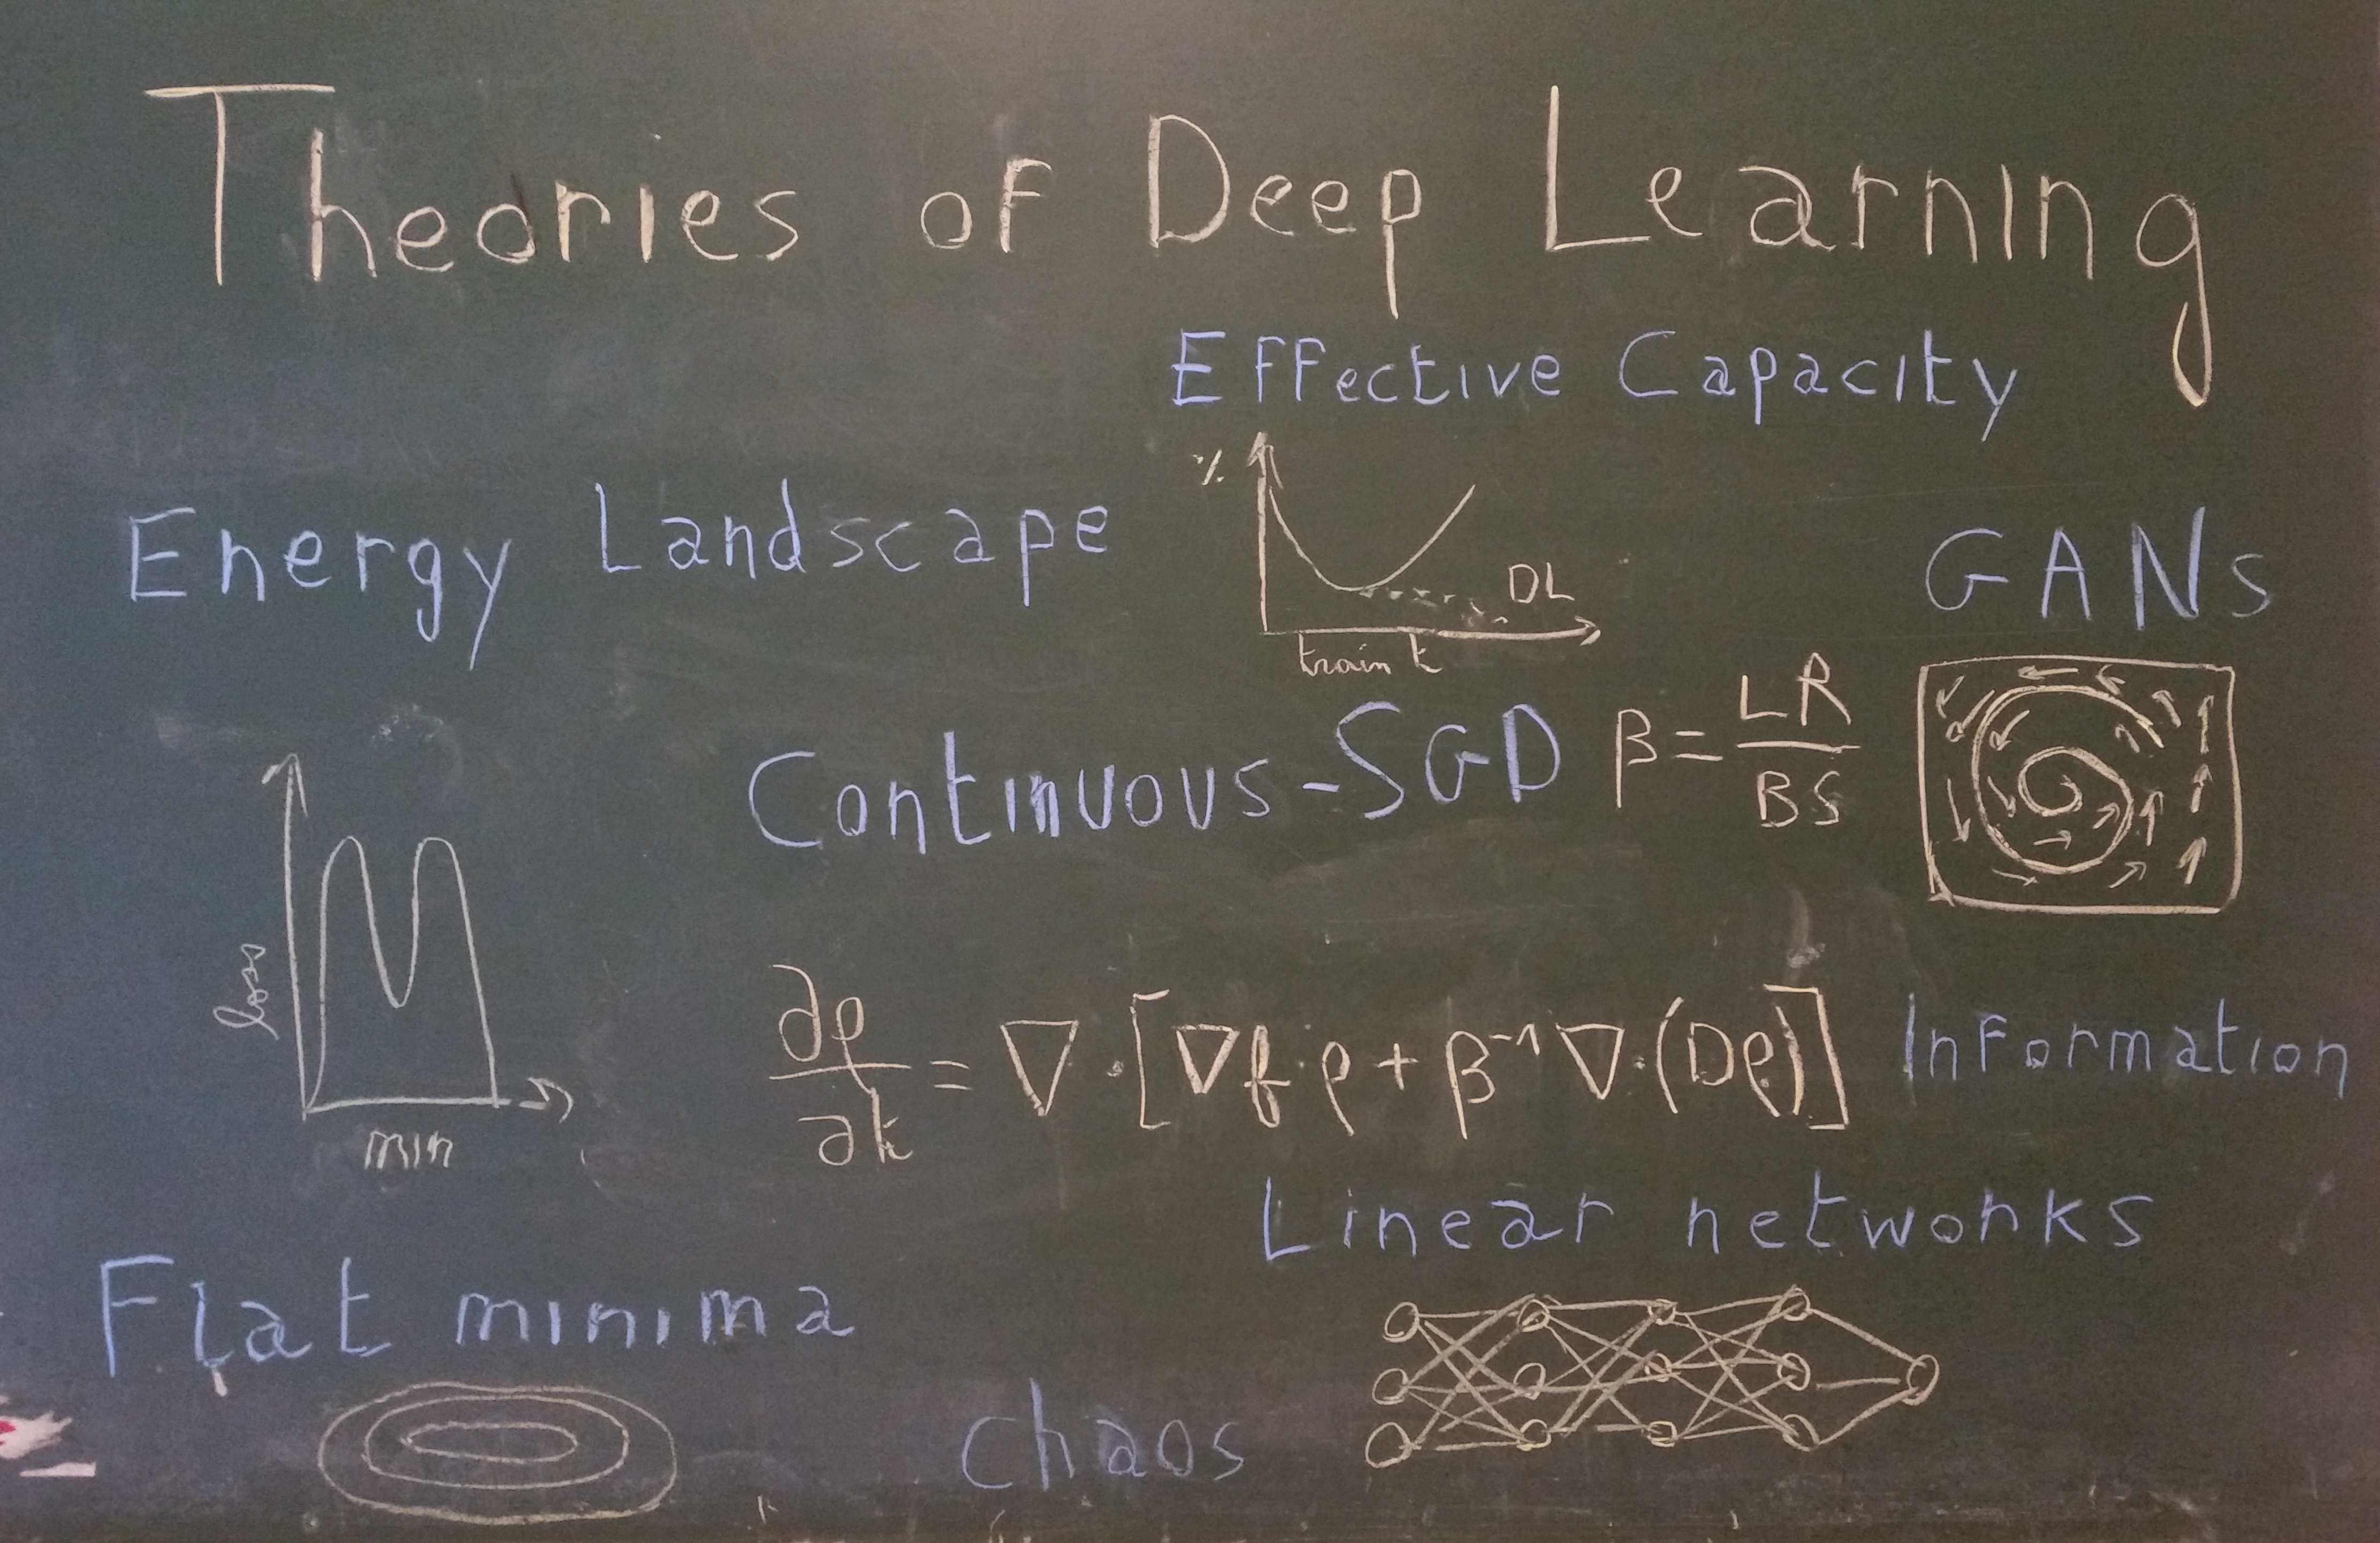 Theories of Deep Learning
Effective Capacity
%
DL
train t
Energy Landscape
loss
min
GANs
Continuous-SGD β = LR / BS
∂ρ/∂t = ∇·[∇f·ρ + β⁻¹∇·(Dρ)]
Information
Linear networks
Flat minima
chaos